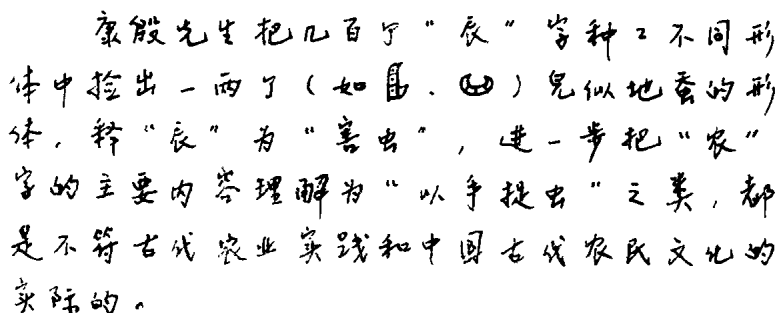 康殷先生把几百个“辰”字种々不同形
体中捡出一两个（如、）見似地蚕的形
体，释“辰”为“害虫”，进一步把“农”
字的主要内容理解为“以手捉虫”之类，都
是不符古代农业实践和中国古代农民文化的
实际的。